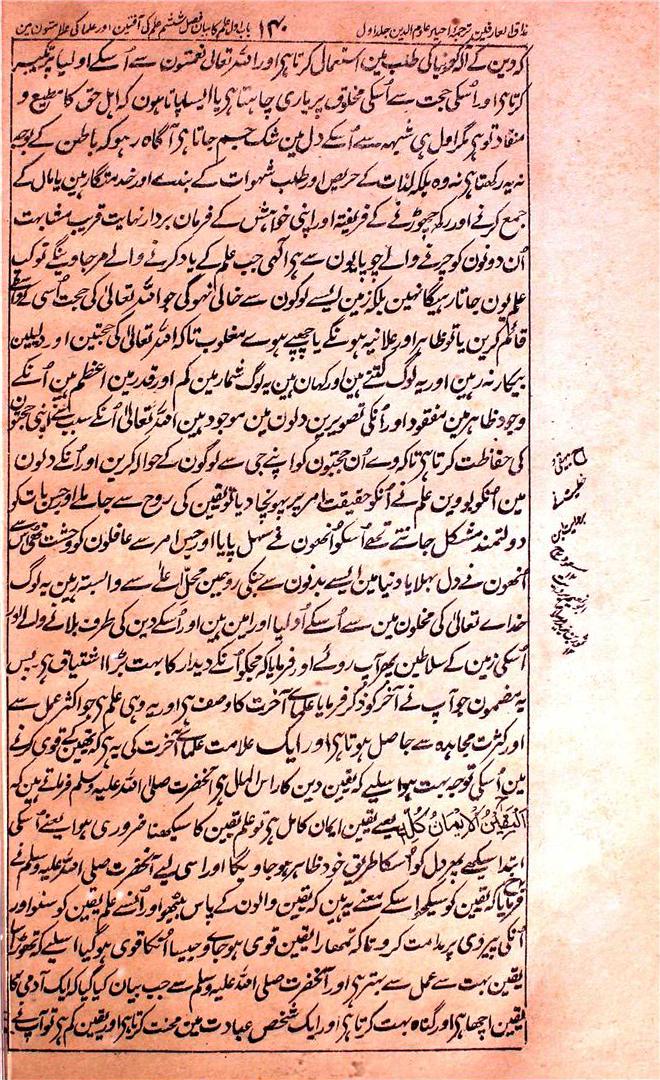 مذاق العارفین ترجمہ احیاء علوم الدین جلد اول ۱۴۰ باب اول علم کا بیان فصل ششم علم کی آفتین اور علما کی علامتون مین
کہ دین کے آلہ کو دنیا کی طلب مین استعمال کرتا ہی اور اللہ تعالی کی نعمتون سے اُسکے اولیا پر تکبر
کرتا ہی اور اُسکی حجت سے اُسکی مخلوق پر یاری چاہتا ہی یا ایسا پاتا ہون کہ اہل حق کا مطیع و
منقاد تو ہی مگر اول ہی شبہہ سے اُسکے دل مین شک جم جاتا ہی آگاہ رہو کہ باطن کے
نہ یہ رکھتا ہی نہ وہ بلکہ لذات کے حریص اور طلب شہوات کے بندے اور خدمتگار ہین یا مال کے
جمع کرنے اور رکھ چھوڑنے کے فریفتہ اور اپنی خواہش کے فرمان بردار نہایت قریب مشابہت
اُن دونون کو چرنے والے چوپایون سے ہی الٰہی جب علم کے یاد کرنے والے مر جاوینگے تو کیا
علم یون جاتا رہیگا نہین بلکہ زمین ایسے لوگون سے خالی نہوگی جو اللہ تعالی کی حجت اُسی کے واسطے
قائم کرین یا تو ظاہر اور علانیہ ہونگے یا چھپے ہوے مغلوب تاکہ اللہ تعالی کی حجتین اور دلیلین
بیکار نہ رہین اور یہ لوگ کتنے ہین اور کہان ہین یہ لوگ شمار مین کم اور قدر مین اعظم ہین اُنکے
وجود ظاہر مین مفقود اور اُنکی تصویرین دلون مین موجود ہین اللہ تعالی اُنکے سبب سے اپنی حجتون
کی حفاظت کرتا ہی تاکہ وے اُن حجتون کو اپنے جی سے لوگون کے حوالہ کرین اور اُنکے دلون
مین اُنکو بووین علم نے اُنکو حقیقت امر پر پہونچا دیا تو یقین کی روح سے جا ملے اور جس بات کو
دولتمند مشکل جانتے تھے اُسکو اُنھون نے سہل پایا اور جس امر سے غافلون کو وحشت تھی اُس سے
اُنھون نے دل بہلایا دنیا مین ایسے بدنون سے جنکی روحین محل اعلے سے وابستہ ہین یہ لوگ
خداے تعالی کی مخلوق مین سے اُسکے اولیا اور امین ہین اور اُسکے دین کی طرف بلانے والے اور
اُسکی زمین کے سلاطین پھر آپ روئے اور فرمایا کہ مجکو اُنکے دیدار کا بہت بڑا اشتیاق ہی پس
یہ مضمون جو آپ نے آخر کو ذکر فرمایا علماے آخرت کا وصف ہی اور یہ وہی علم ہی جو اکثر عمل سے
اور کثرت مجاہدہ سے حاصل ہوتا ہی اور ایک علامت علماے آخرت کی یہ ہی کہ یقین کے قوی کرنے
مین اُسکی توجہ بہت ہو اسلیے کہ یقین دین کا راس المال ہی آنحضرت صلی اللہ علیہ وسلم فرماتے ہین کہ
اَلْیَقِیْنُ الْاِیْمَانُ کُلُّہُ یعنے یقین ایمان کامل ہی تو علم یقین کا سیکھنا ضروری ہوا یعنے اُسکی
ابتدا سیکھے پھر دل کو اُسکا طریق خود ظاہر ہو جاویگا اور اسی لیے آنحضرت صلی اللہ علیہ وسلم نے
فرمایا کہ یقین کو سیکھو اسکے معنے یہ ہین کہ یقین والون کے پاس بیٹھو اور اُنسے علم یقین کو سنو اور
اُنکی پیروی پر مداومت کرو تاکہ تمھارا یقین قوی ہو جاوے جیسا اُنکا قوی ہو گیا اسلیے کہ تھوڑا سا
یقین بہت سے عمل سے بہتر ہی اور آنحضرت صلی اللہ علیہ وسلم سے جب بیان کیا گیا کہ ایک آدمی کا
یقین اچھا ہی اور گناہ بہت کرتا ہی اور ایک شخص عبادت مین محنت کرتا ہی اور یقین کم ہی تو آپ نے